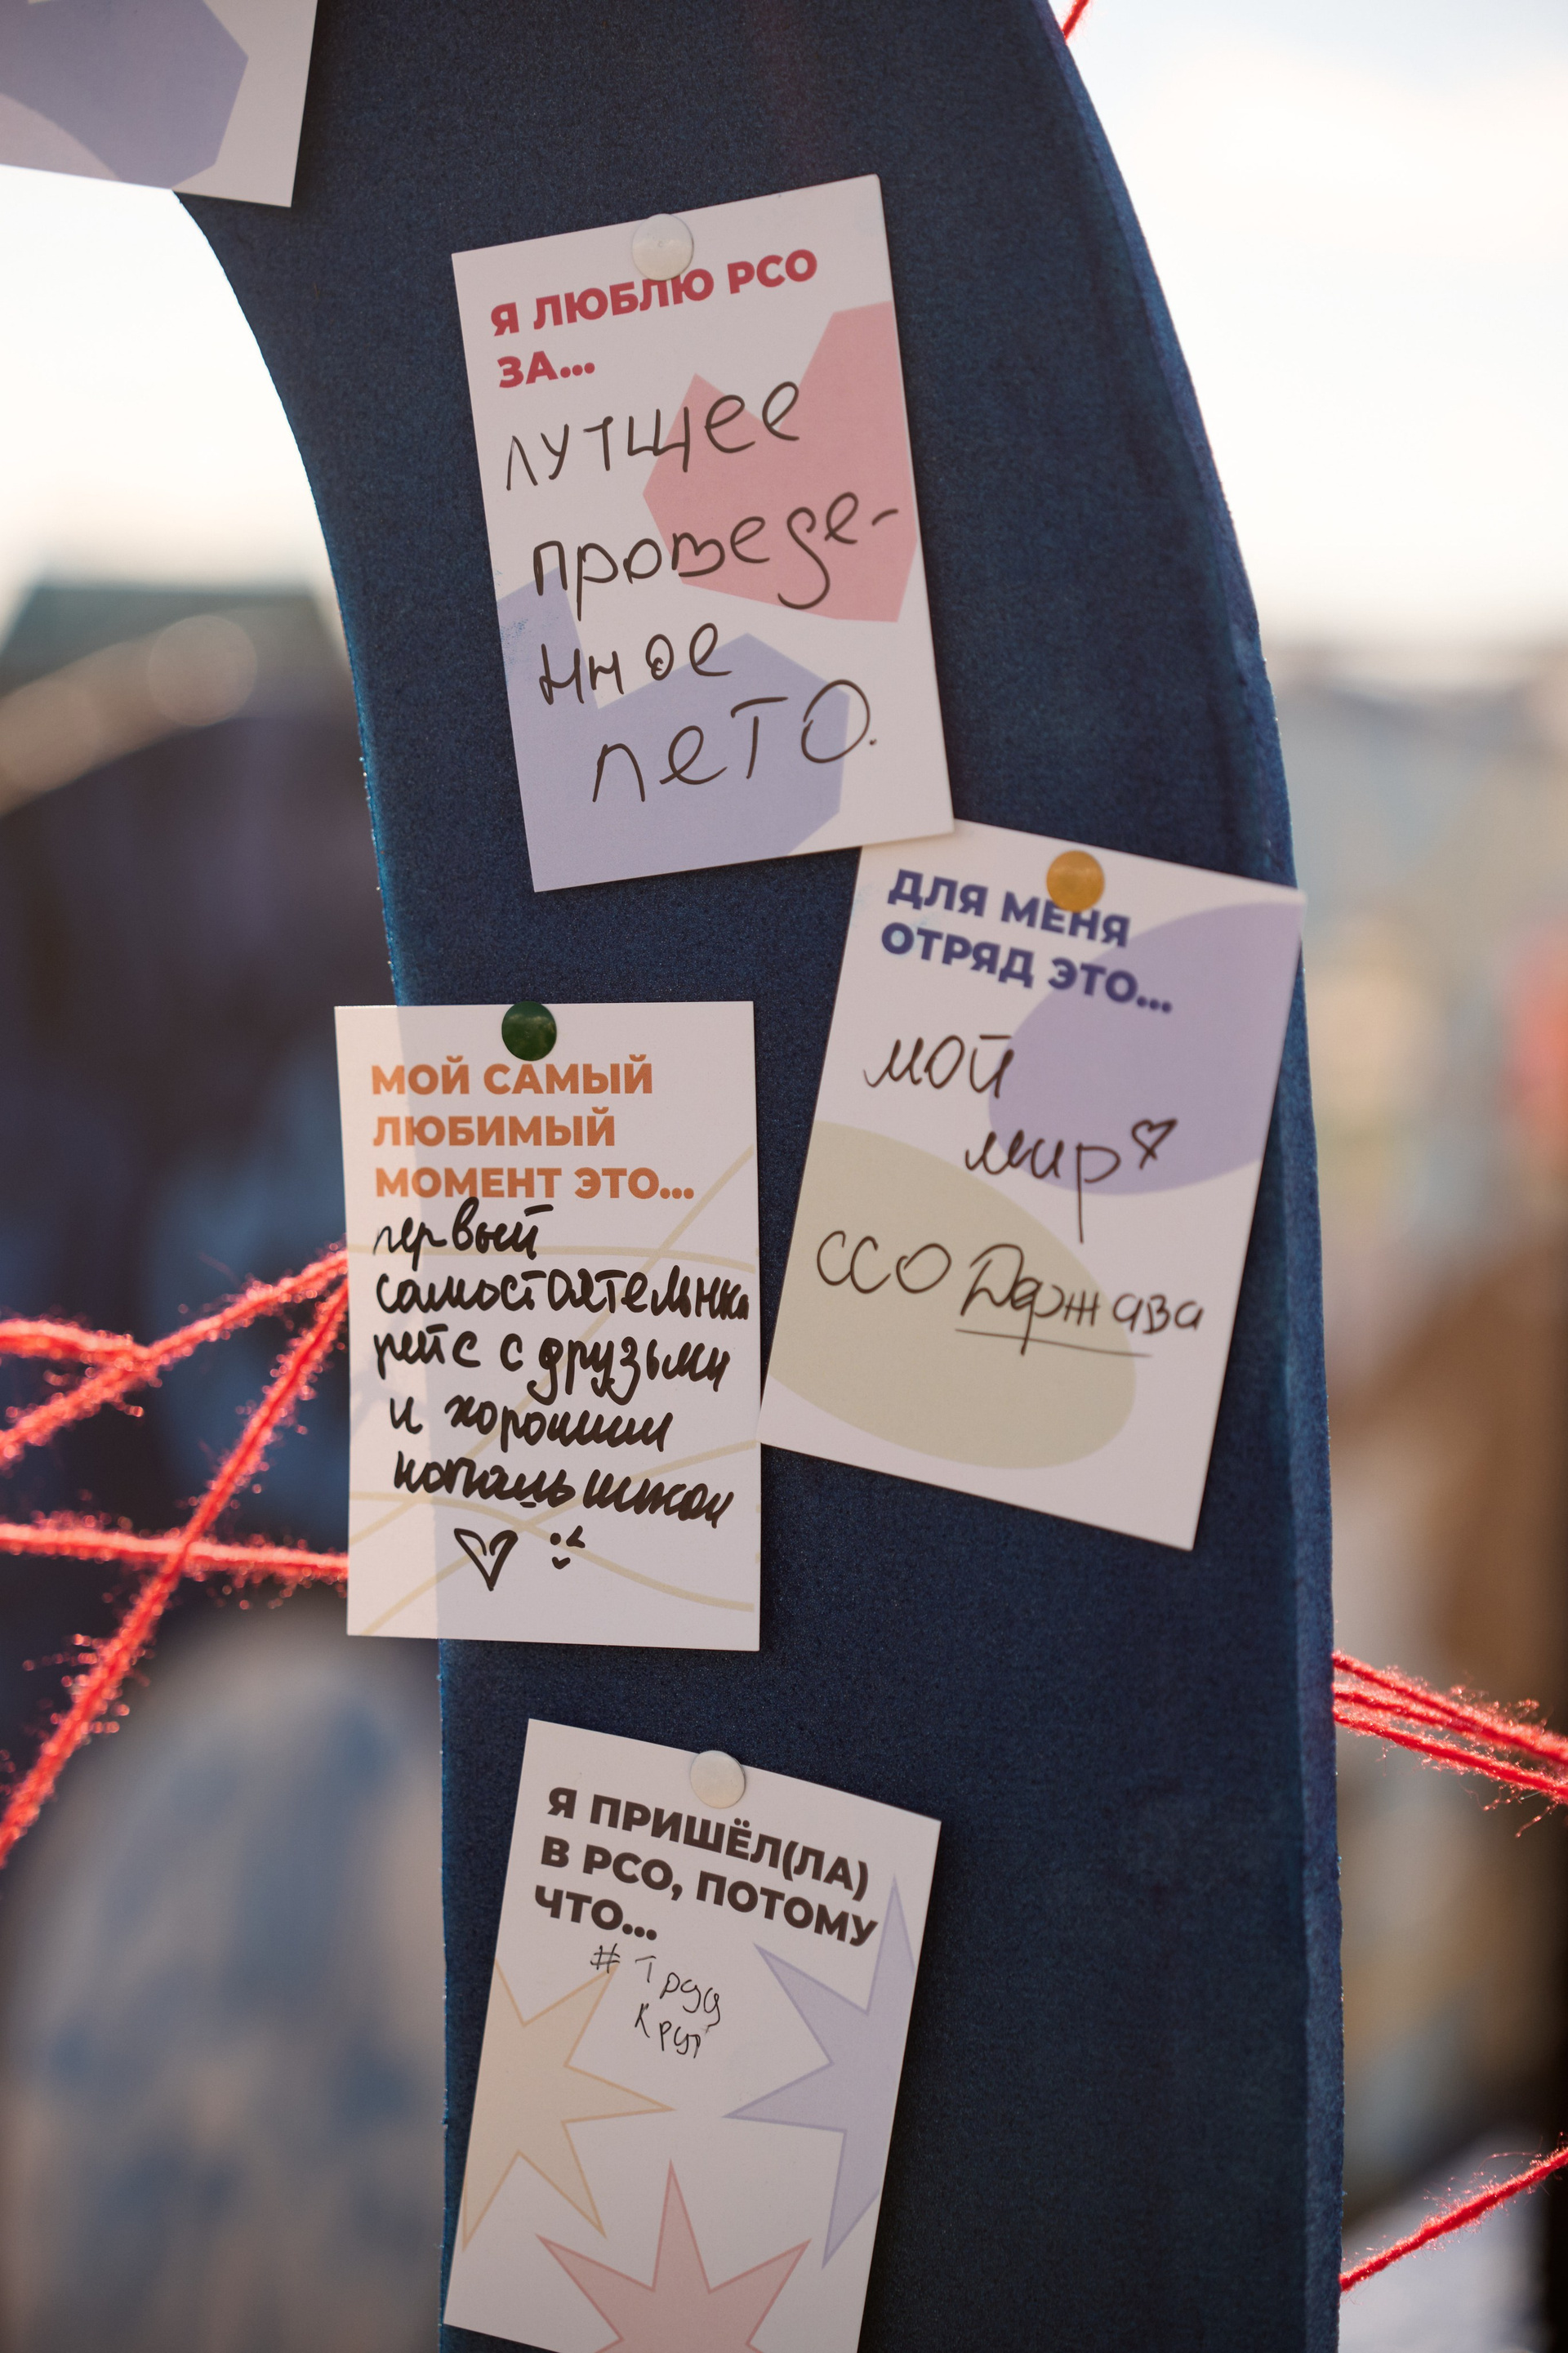 Я ЛЮБЛЮ РСО
ЗА...
лутщее
проведе-
нное
лето.
ДЛЯ МЕНЯ
ОТРЯД ЭТО...
мой
мир
ССО Держава
МОЙ САМЫЙ
ЛЮБИМЫЙ
МОМЕНТ ЭТО...
первый
рейс с друзьями
и хорошим
Я ПРИШЁЛ(ЛА)
В РСО, ПОТОМУ
ЧТО...
# Труд
Крут